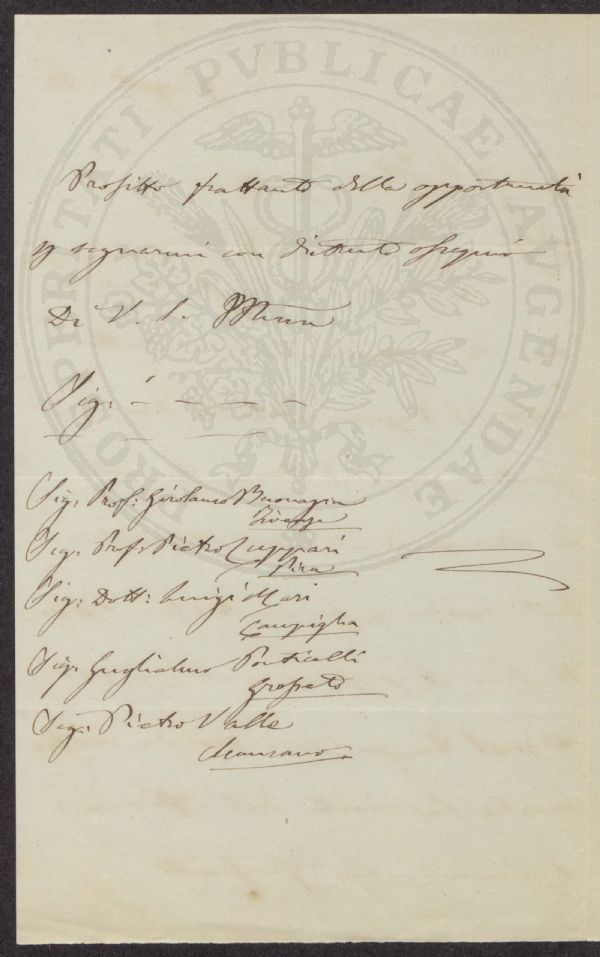 PROSPERITATI PVBLICAE AVGENDAE
Profitto frattanto della opportunità
p segnarmi con distinto ossequio
Di V. S. Illma
Sig:
Sig: Prof: Girolamo Buonazia
Firenze
Sig. Prof: Pietro Cuppari
Pisa
Sig: Dott: Luigi Mari
Campiglia
Sig. Guglielmo Ponticelli
Grosseto
Sig: Pietro Valle
Scansano